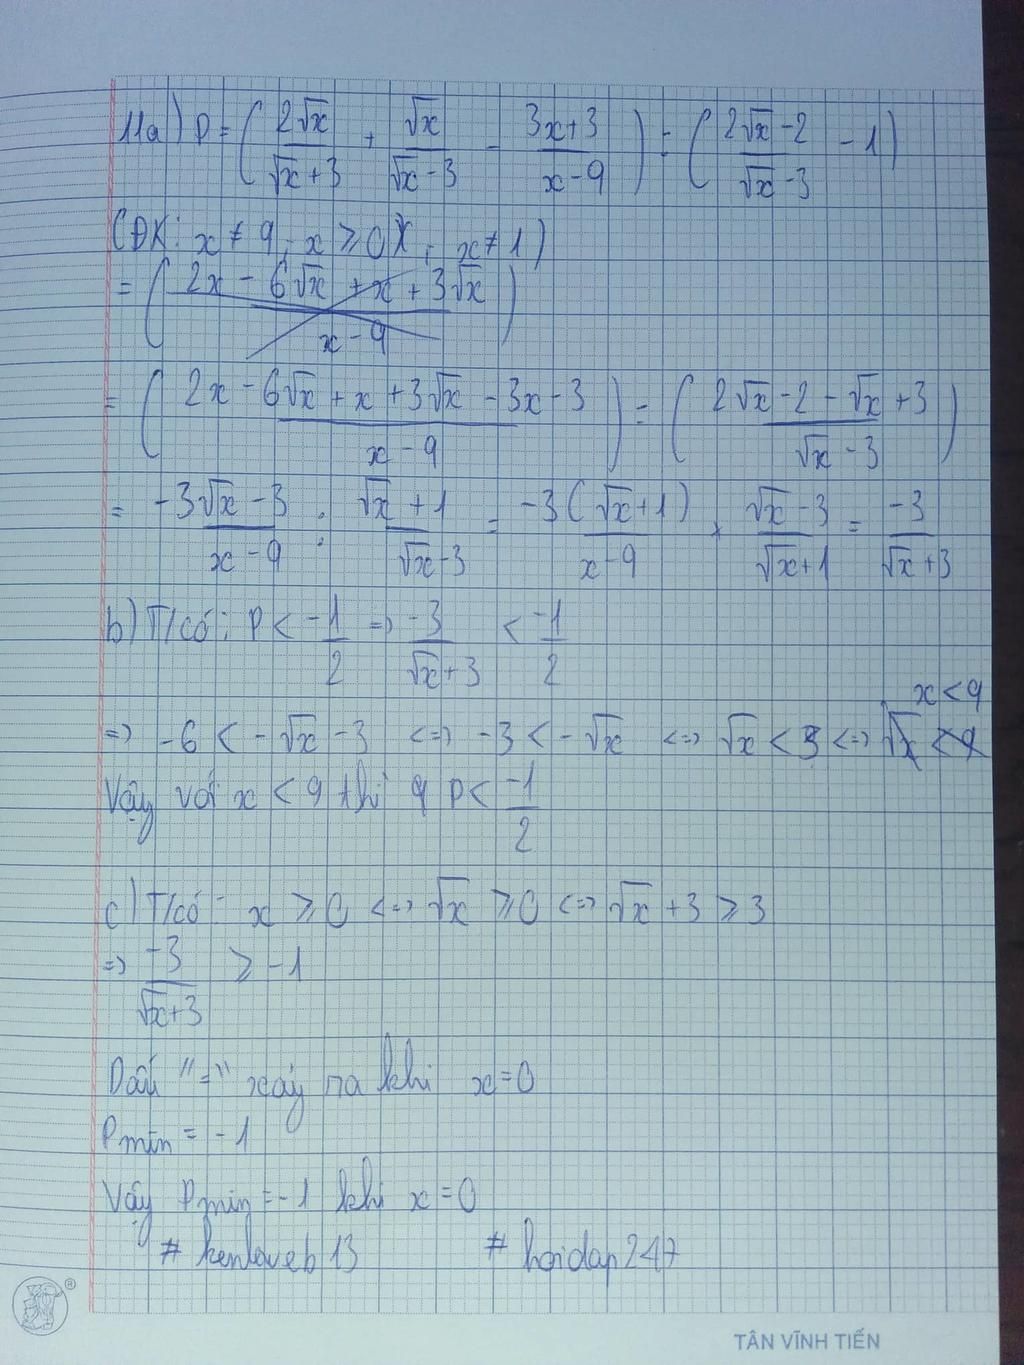 11a) P = (2√x/(√x+3) + √x/(√x-3) - (3x+3)/(x-9)) : ((2√x-2)/(√x-3) - 1)
(ĐK: x ≠ 9; x ≥ 0; x ≠ 1)
= ((2x - 6√x + x + 3√x)/(x-9))
= ((2x - 6√x + x + 3√x - 3x - 3)/(x-9)) : ((2√x - 2 - √x + 3)/(√x - 3))
= (-3√x - 3)/(x-9) : (√x + 1)/(√x-3) = -3(√x+1)/(x-9) × (√x-3)/(√x+1) = -3/(√x+3)
b) T/có: P < -1/2 => -3/(√x+3) < -1/2
x < 9
=> -6 < -√x - 3 <=> -3 < -√x <=> √x < 3 <=> √x < 9
Vậy với x < 9 thì P < -1/2
c) T/có: x ≥ 0 <=> √x ≥ 0 <=> √x + 3 ≥ 3
=> -3/(√x+3) ≥ -1
Dấu "=" xảy ra khi x = 0
Pmin = -1
Vậy Pmin = -1 khi x = 0
# kenloveb13 # hoidap247
®
TÂN VĨNH TIẾN